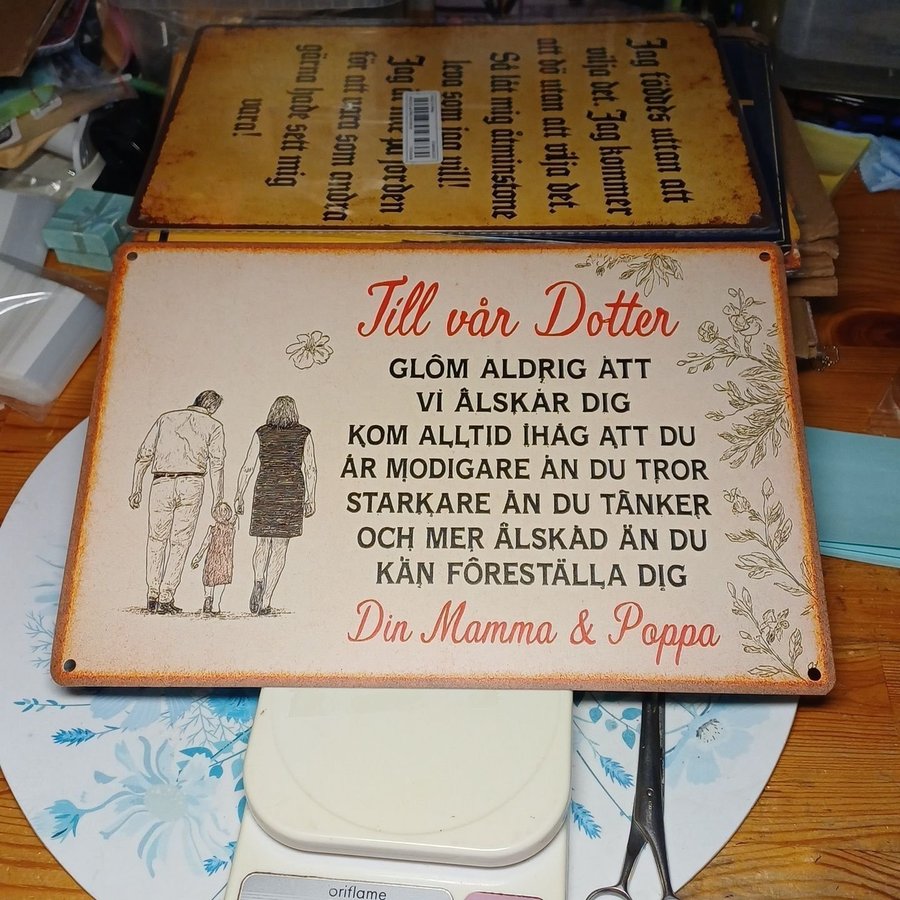 Jag föddes uttan att
vilja det. Jag kommer
att dö utan att vilja det.
Så låt mig åtminstone
leva som jag vill!
Jag på jorden
för att vara som andra
gärna hade sett mig
vara!
Till vår Dotter
GLÔM ALDRIG ATT
VI ÂLSKAR DIG
KOM ALLTID IHÅG ATT DU
ÅR MODIGARE ÅN DU TROR
STARKARE ÅN DU TÂNKER
OCH MER ÂLSKAD ÄN DU
KÄN FÔRESTÄLLA DIG
Din Mamma & Poppa
oriflame